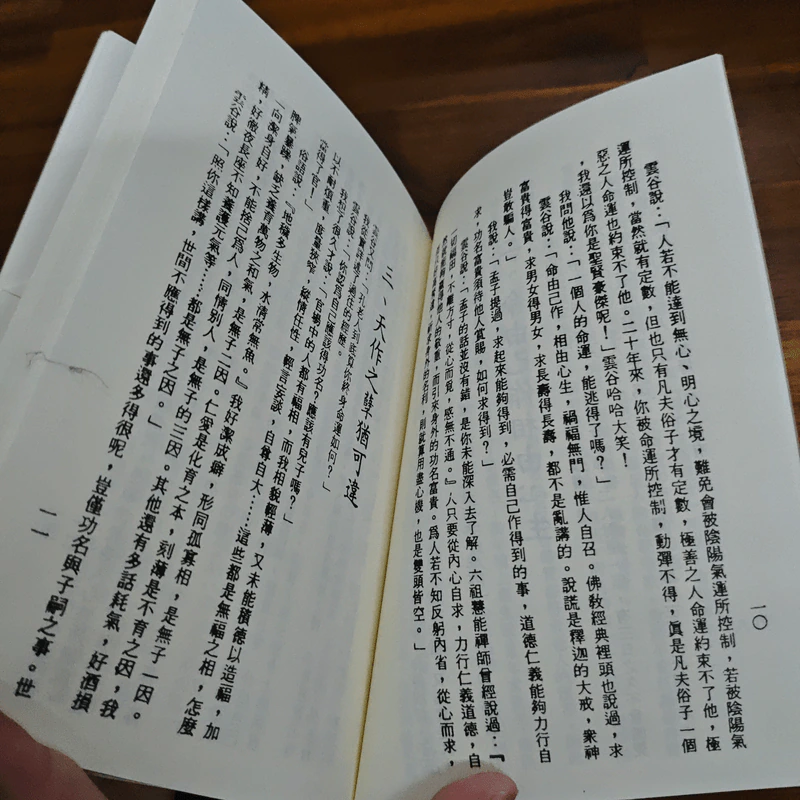 一〇
雲谷說：「人若不能達到無心、明心之境，難免會被陰陽氣運所控制，若被陰陽氣
運所控制，當然就有定數，但也只有凡夫俗子才有定數，極善之人命運約束不了他，極
惡之人命運也約束不了他。二十年來，你被命運所控制，動彈不得，眞是凡夫俗子一個
，我還以爲你是聖賢豪傑呢！」雲谷哈哈大笑！
我問他說：「一個人的命運，能逃得了嗎？」
雲谷說：「命由己作，相由心生，禍福無門，惟人自召。佛教經典裡頭也說過，求
富貴得富貴，求男女得男女，求長壽得長壽，都不是亂講的。說謊是釋迦的大戒，衆神
豈敢騙人。」
我說：「孟子提過，求起來能夠得到，必需自己作得到的事，道德仁義能夠力行自
求，功名富貴須待他人賞賜，如何求得到？」
雲谷說：「孟子的話並沒有錯，是你未能深入去了解。六祖慧能禪師曾經說過：『
一切福田，不離方寸，從心而覓，感無不通。』人只要從內心自求，力行仁義道德，自
然能夠贏得他人的敬重，而引來身外的功名富貴。爲人若不知反躬內省，從心而求，
求身外的名利，則就算用盡心機，也是雙頭皆空。」
三、天作之孽猶可違
雲谷又問：「孔老人到底算你終身的命運如何？」
我老實詳述了過往的經歷。
雲谷說：「你認爲自己應該得功名？應該有兒子嗎？」
我想了很久才說：「官場中的人都有福相，而我相貌輕薄，又未能積德以造福，加
以不耐煩重，度量狹窄，縱情任性，輕言妄談，自尊自大……這些都是無福之相，怎麼
當得了官！」
俗語說：「『地穢多生物，水清常無魚。』我好潔成癖，形同孤寡相，是無子一因。
脾氣暴躁，缺乏養育萬物之和氣，是無子二因。仁愛是化育之本，刻薄是不育之因，我
一向潔身自好，不能捨己爲人，同情別人，是無子的三因。其他還有多話耗氣，好酒損
精，好徹夜長座不知養護元氣等……都是無子之因。」
雲谷說：「照你這樣講，世間不應得到的事還多得很呢，豈僅功名與子嗣之事。世
一一